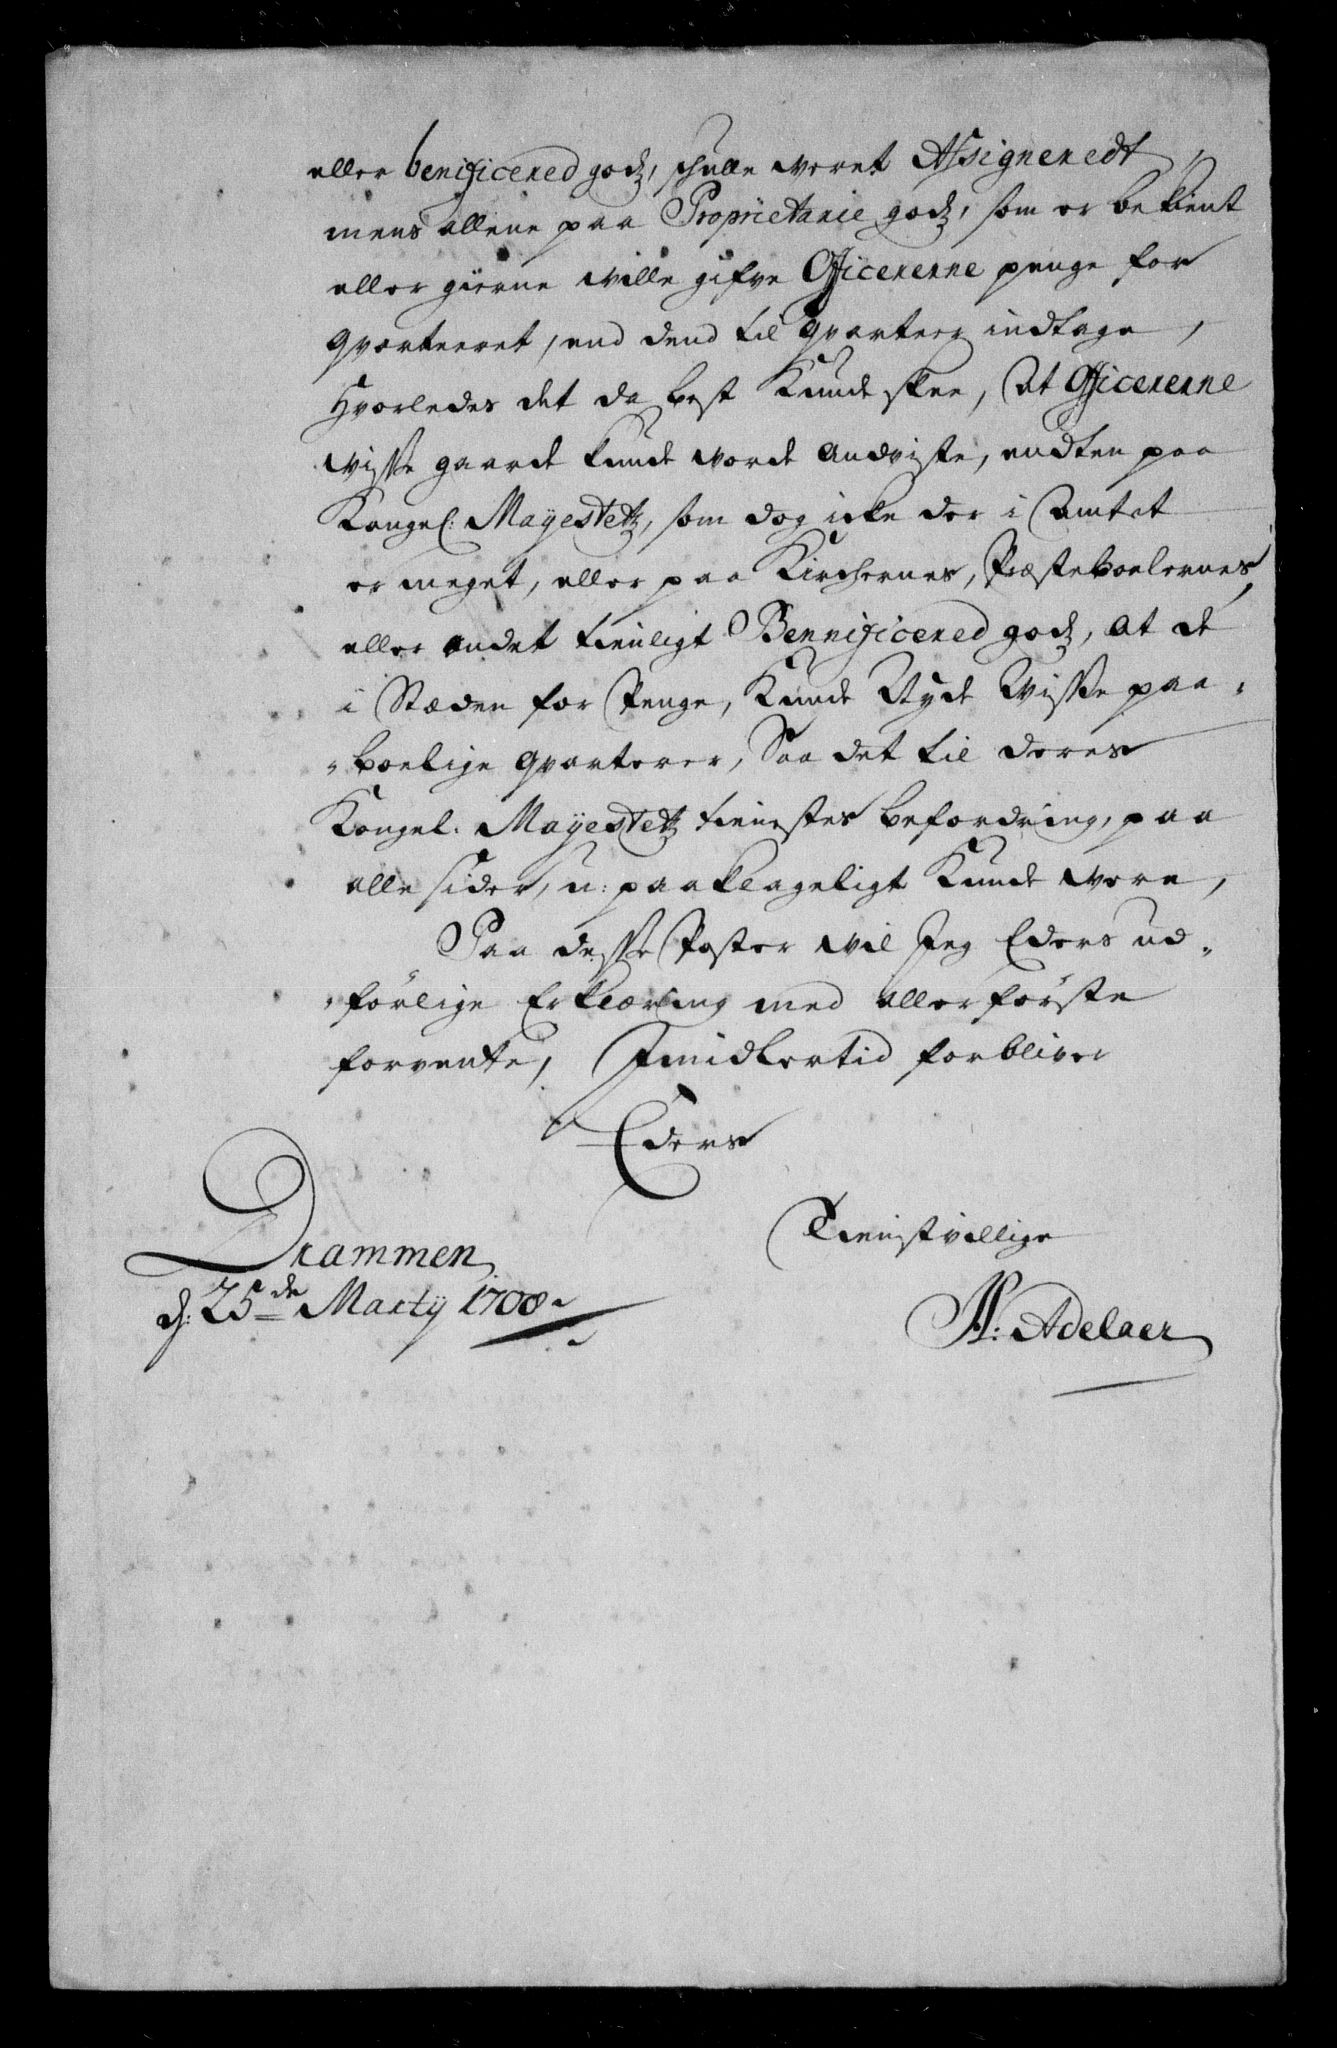 eller benificered godz, schulle veret Assigneredt,
mens allene paa Proprietarie godz, som er bekient
eller gierne ville gifve Officererne penge for
qvarteeret, end dend til qvarteer indtage,
Hvorledes det da best Kunde skee, At Officererne
visse gaarde kunde vorde Andviste, endten paa
Kongel: Mayestetz, som dog icke der i Amtet
er meget, eller paa Kirchernes, Præsteboelernes,
eller andet tienligt Bennificered godz, at de
i Stæden for Penge, Kunde Nyde Visse paa-
-boelige qvarterer, Saa det til deres
Kongel. Mayestetz tienistes befordring, paa
alle sider, u-paaklageligt Kunde vere,
Paa desse Poster vil Jeg Eders ud-
-förlige Erklæring med allerförste
forvente, Imidlertid forbliver
Eders
Tienistvillige
Drammen
d: 25de Marty 1708
A: Adelaer